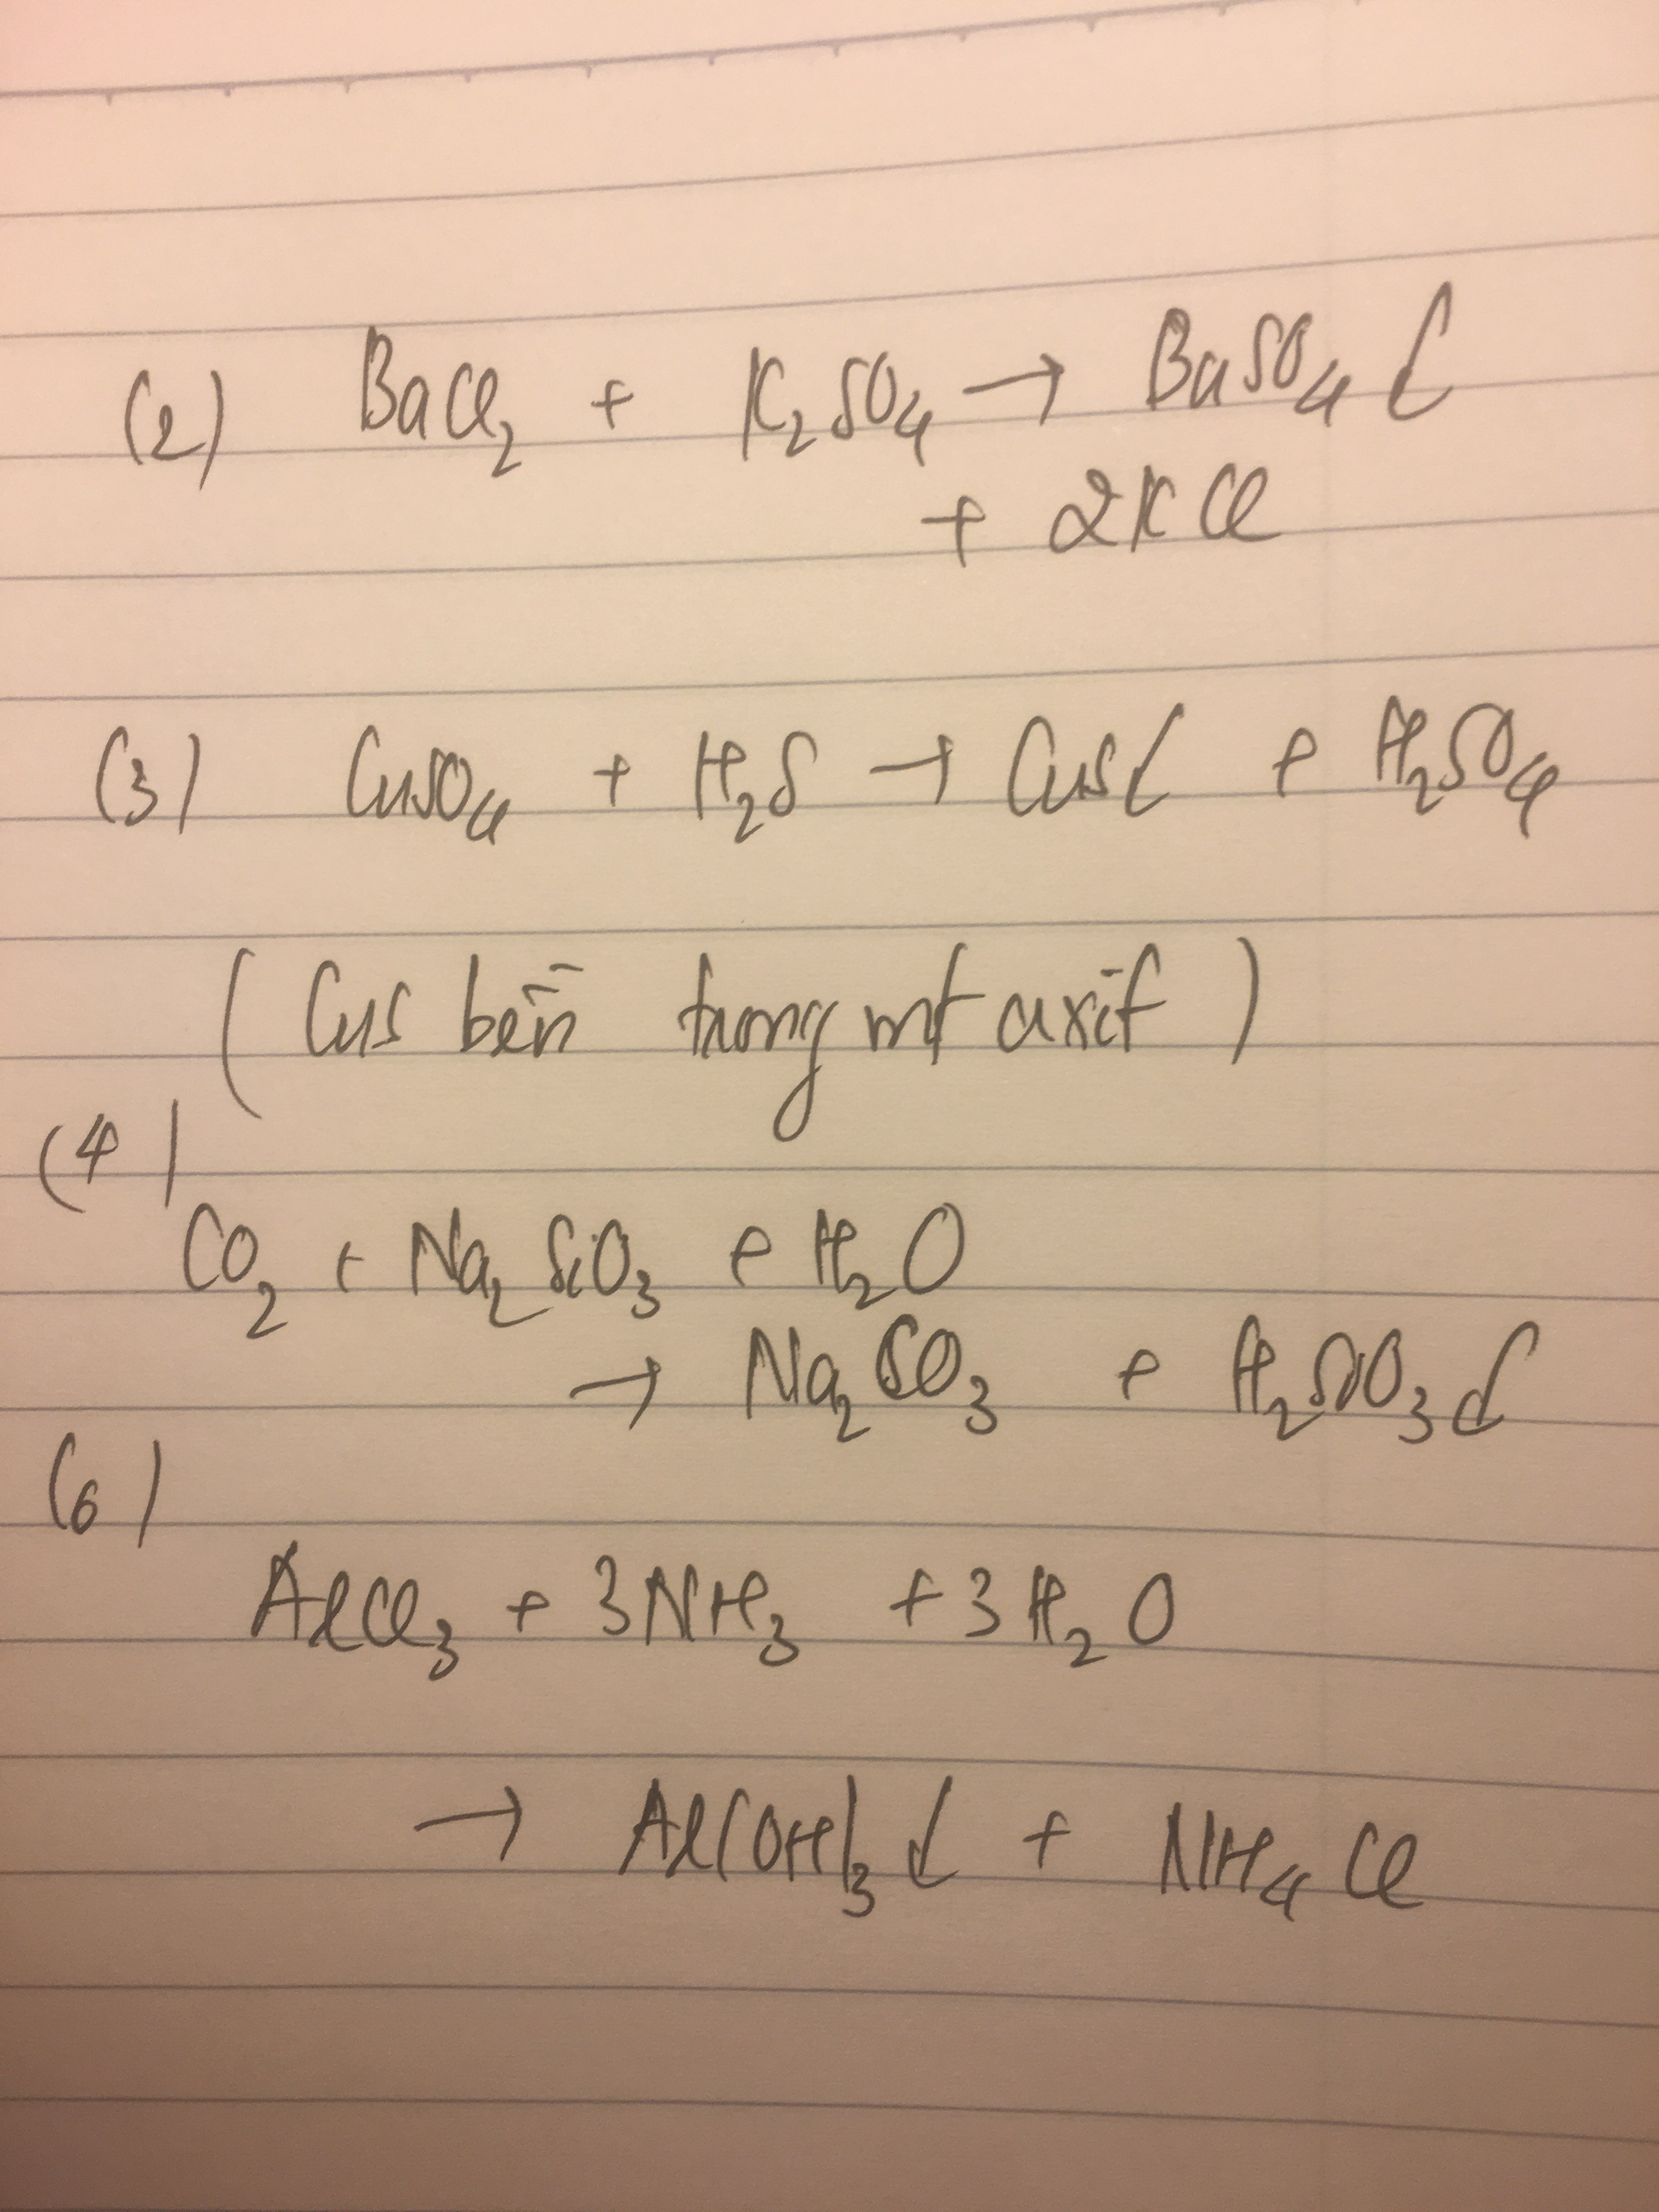 (2) BaCl₂ + K₂SO₄ → BaSO₄ ↓
+ 2KCl
(3) CuSO₄ + H₂S → CuS↓ + H₂SO₄
(CuS bền trong mt axit)
(4)
CO₂ + Na₂SiO₃ + H₂O
→ Na₂CO₃ + H₂SiO₃↓
(6)
AlCl₃ + 3NH₃ + 3H₂O
→ Al(OH)₃↓ + NH₄Cl